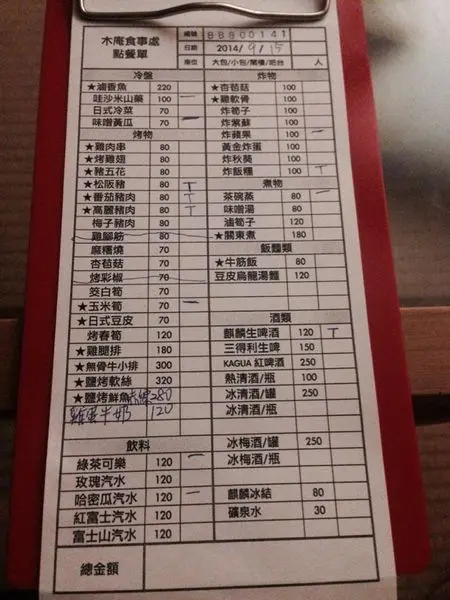 木庵食事處
點餐單
編號 88800141
日期 2014/9/15
座位 大包/小包/閣樓/吧台 人
冷盤
★滷香魚 220
哇沙米山藥 100 一
日式冷菜 70
味噌黃瓜 70 一
烤物
★雞肉串 80
★烤雞翅 80
★豬五花 80
★松阪豬 80 T
★番茄豬肉 80 T
★高麗豬肉 80 T
梅子豬肉 80
雞腳筋 80
麻糬燒 70
杏苞菇 70
烤彩椒 70
筊白筍 70
★玉米筍 70 一
★日式豆皮 70
烤春筍 120
★雞腿排 180
★無骨牛小排 300
★鹽烤軟絲 320
★鹽烤鮮魚 280
雞蛋牛奶 120
飲料
綠茶可樂 120 一
玫瑰汽水 120
哈密瓜汽水 120 一
紅富士汽水 120
富士山汽水 120
總金額
炸物
★杏苞菇 100
★雞軟骨 100
炸筍子 100
炸紫蘇 100
炸蘋果 100 一
黃金炸蛋 100
炸秋葵 100
炸飯糰 100 T
煮物
茶碗蒸 80 一
味噌湯 80
滷筍子 120
★關東煮 180
飯麵類
★牛筋飯 80
豆皮烏龍湯麵 120
酒類
麒麟生啤酒 120 T
三得利生啤 150
KAGUA 紅啤酒 250
熱清酒/瓶 100
冰清酒/罐 250
冰清酒/瓶
冰梅酒/罐 250
冰梅酒/瓶
麒麟冰結 80
礦泉水 30